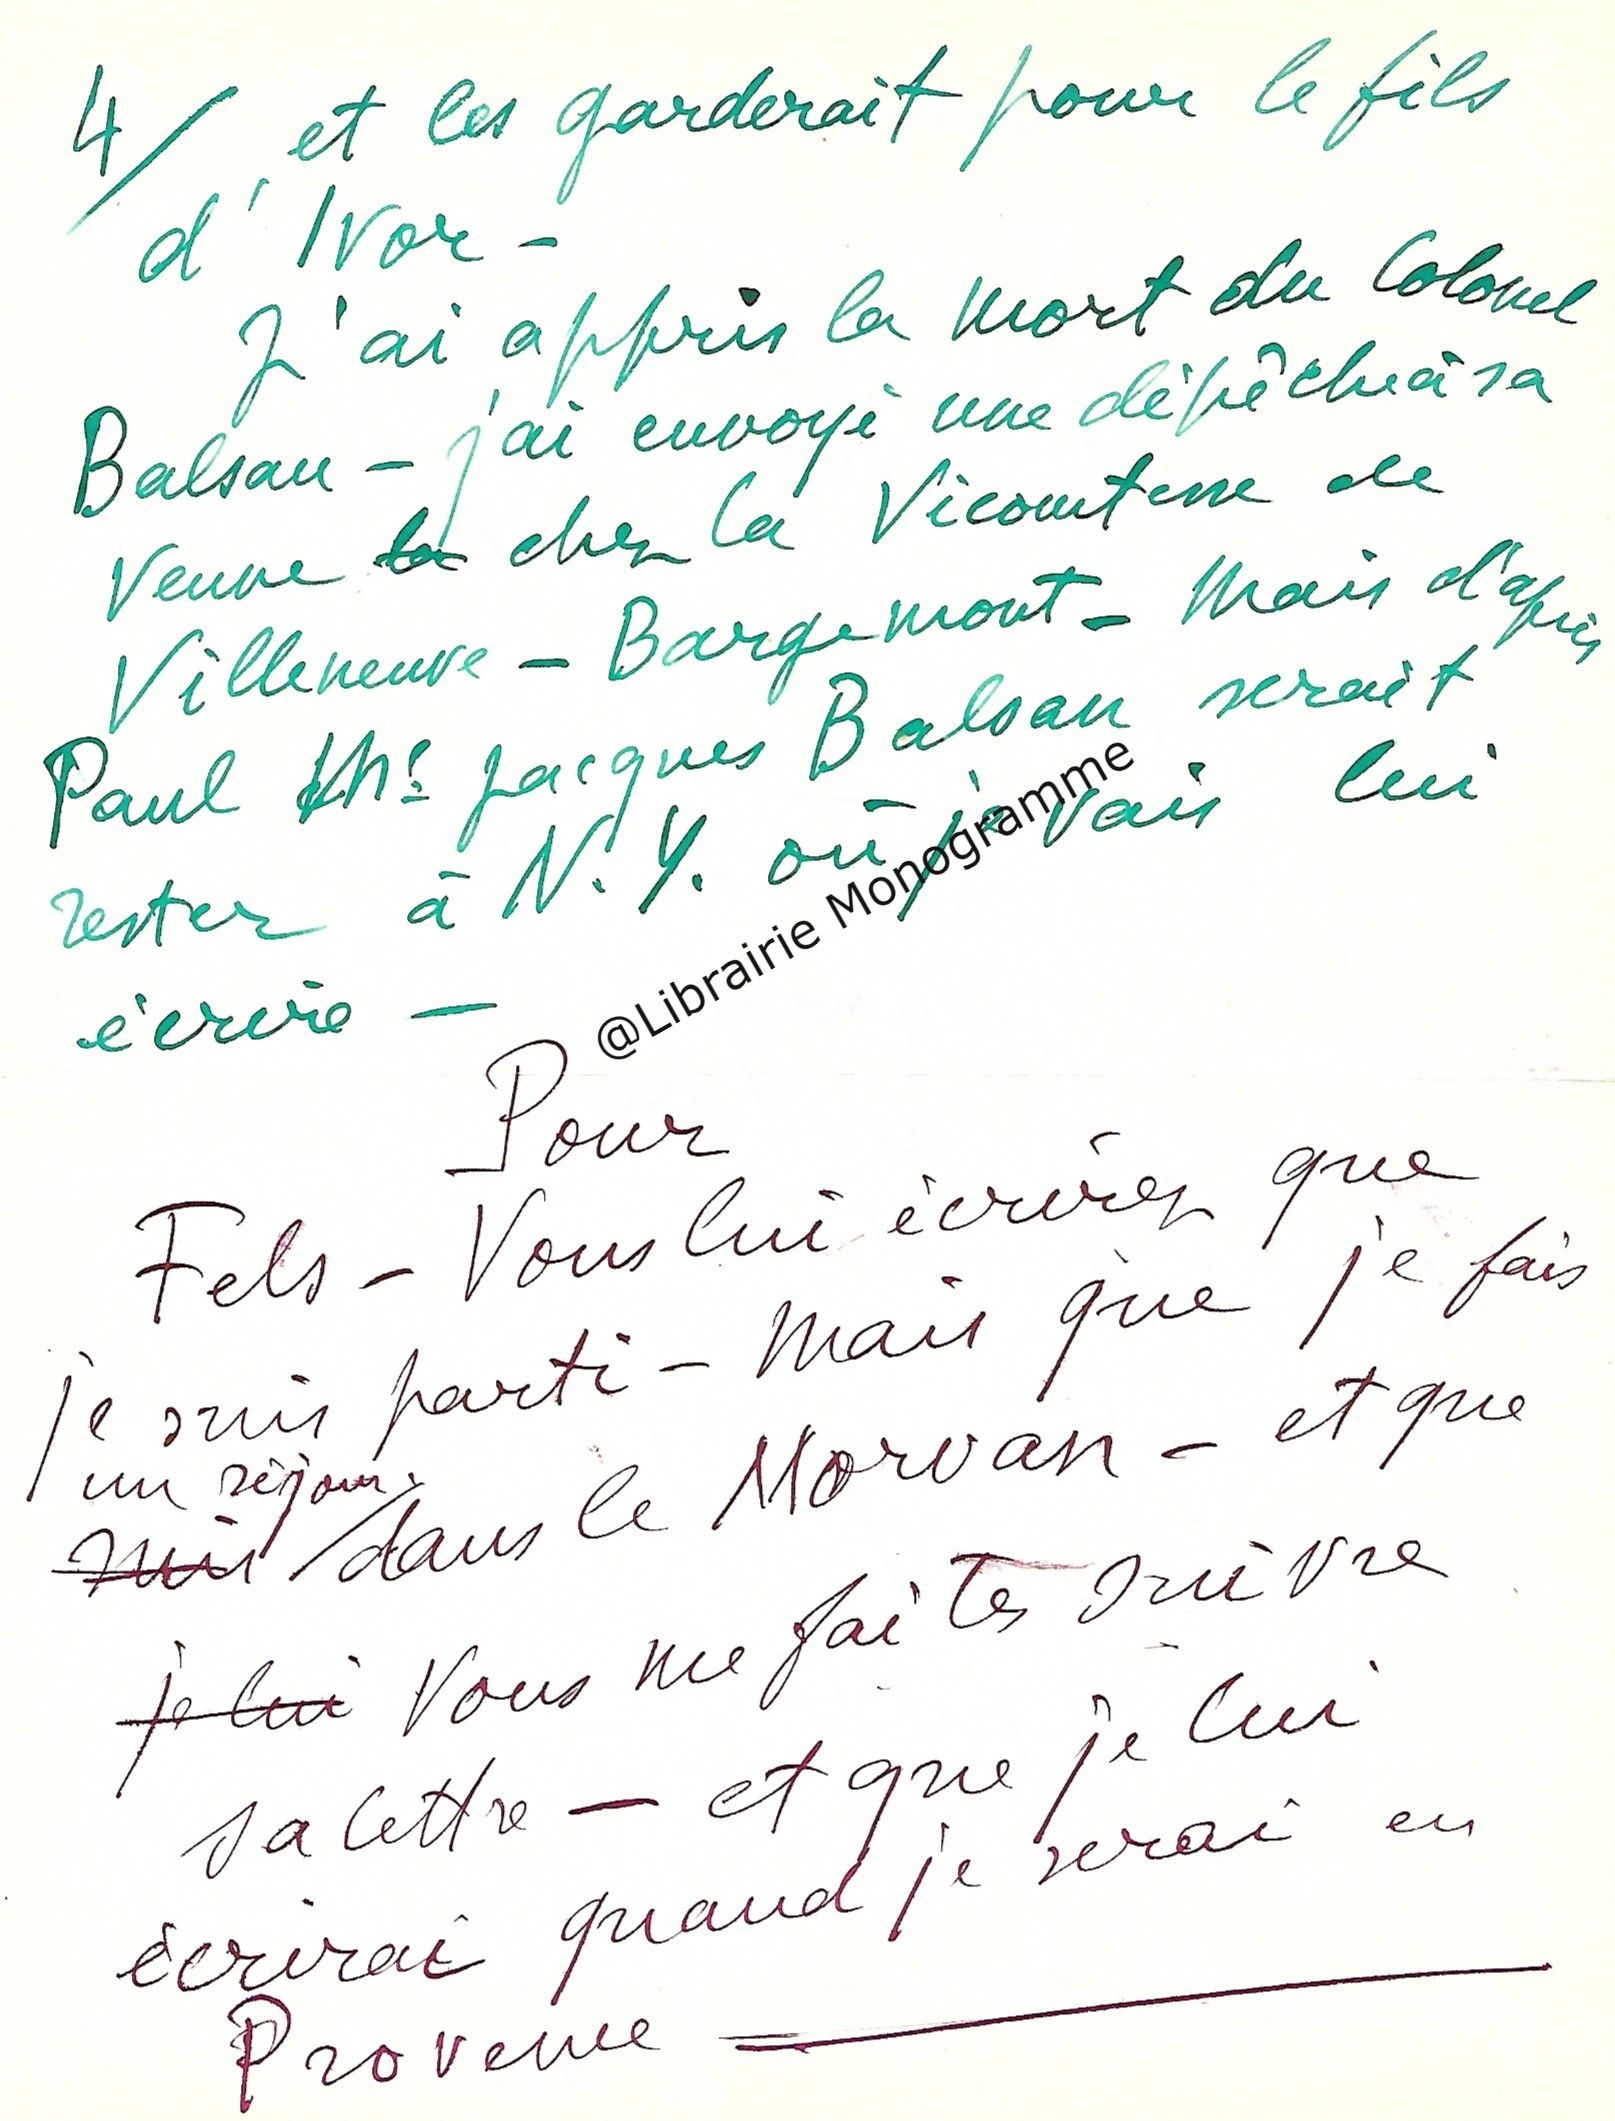 4/ et les garderait pour le fils
d'Ivor -
J'ai appris la mort du Colonel
Balsan - j'ai envoyé une dépêche à sa
veuve la chez la Vicomtesse de
Villeneuve - Bargemont - Mais d'après
Paul Me Jacques Balsan serait
rester à N.Y. où je vais lui
écrire -
@Librairie Monogramme
Pour
Fels - Vous lui écrirez que
je suis parti - Mais que je fais
un séjour
suis dans le Morvan - et que
je lui Vous me faites suivre
sa lettre - et que je lui
écrirai quand je serai en
Provence